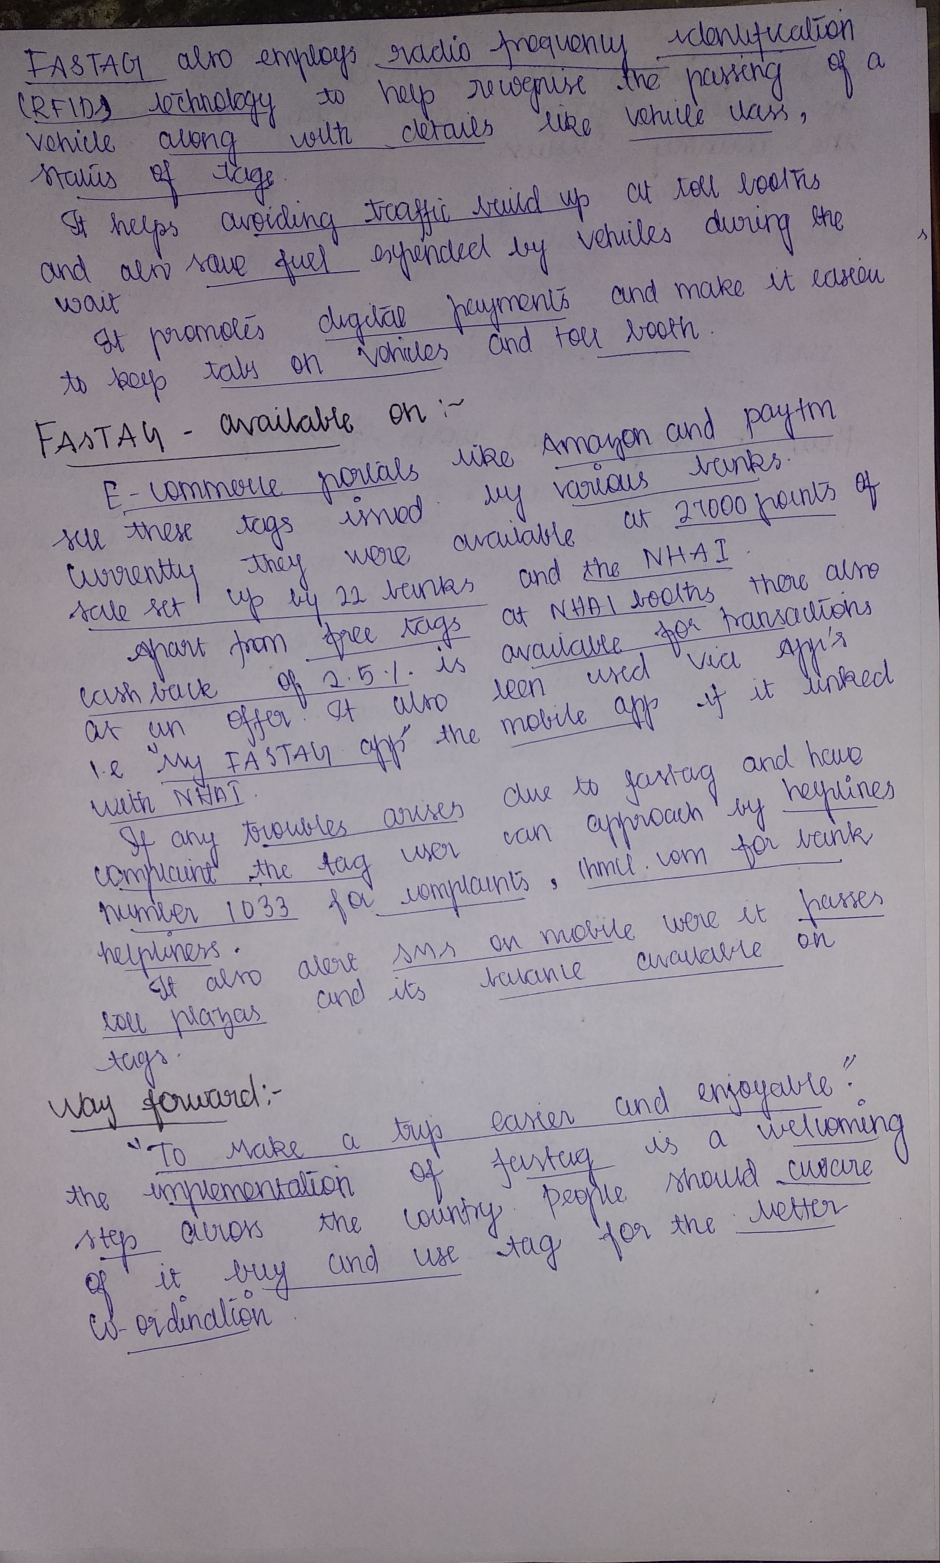 FASTAG also employs radio frequency identification
(RFID) technology to help recognise the passing of a
vehicle along with details like vehicle class,
status of tags.
It helps avoiding traffic build up at toll booths
and also save fuel expended by vehicles during the
wait
It promotes digital payments and make it easier
to keep tabs on vehicles and toll booth.
FASTAG - available on :-
E-commerce portals like Amazon and paytm
sell these tags issued by various banks.
Currently they were available at 27000 points of
sale set up by 22 banks and the NHAI.
Apart from free tags at NHAI booths there also
cash back of 2.5% is available for transactions
as an offer. It also been used via app's
i.e "My FASTAG app" the mobile app if it linked
with NHAI.
If any troubles arises due to fastag and have
complaint the tag user can approach by heplines
number 1033 for complaints, ihmcl.com for bank
helpliness.
It also alert sms on mobile were it passes
toll plazas and its balance available on
tags.
Way forward:-
"To make a trip easier and enjoyable".
the implementation of fastag is a welcoming
step across the country. People should aware
of it buy and use tag for the better
co-ordination